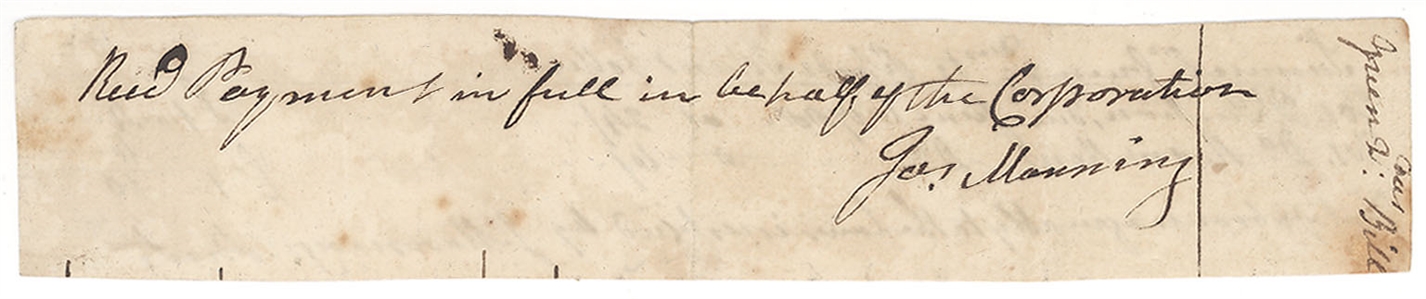 Recd Payment in full in behalf of the Corporation
Jas. Manning
Bill